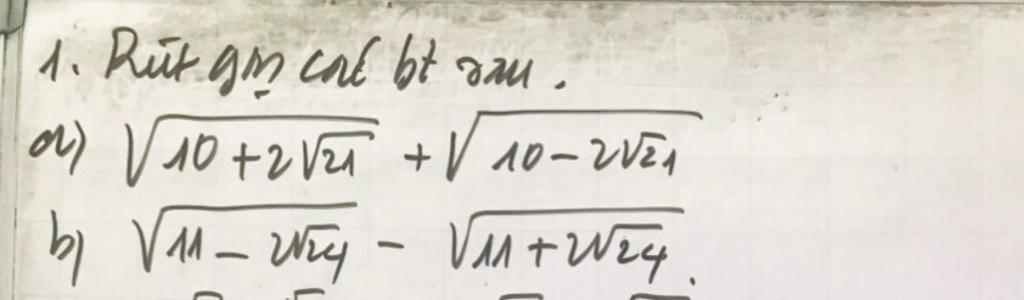 1. Rút gọn các bt sau.
a) √(10 + 2√21) + √(10 - 2√21)
b) √(11 - 2√24) - √(11 + 2√24).